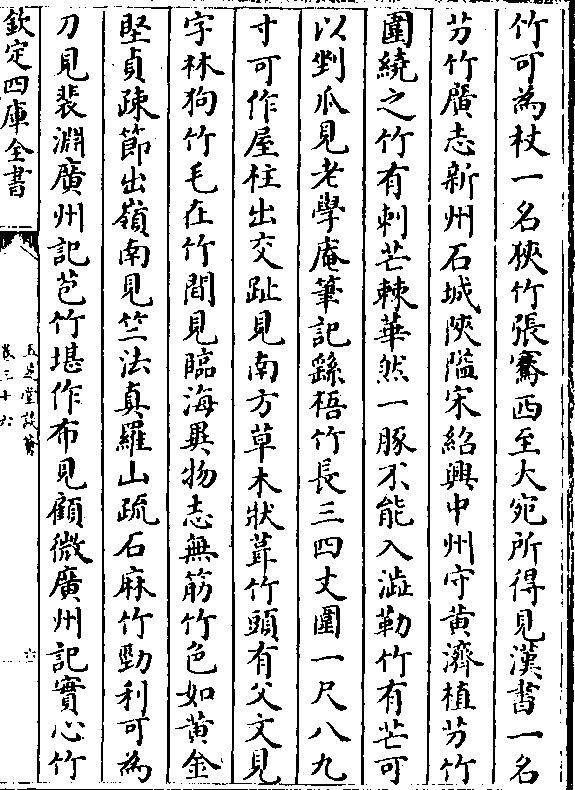 竹可為杖一名狹竹張騫西至大宛所得見漢書一名
竻竹廣志新州石城陜隘宋紹興中州守黃濟植竻竹
圍繞之竹有刺芒棘華然一豚不能入澁勒竹有芒可
以剉爪見老學庵筆記繇梧竹長三四丈圍一尺八九
寸可作屋柱出交趾見南方草木狀葺竹頭有父文見
字林狗竹毛在竹間見臨海異物志無筋竹色如黃金
堅貞疎節出嶺南見竺法真羅山疏石麻竹勁利可為
刀見裴淵廣州記苞竹堪作布見顧微廣州記實心竹
欽定四庫全書
玉芝堂談薈
卷三十六
六